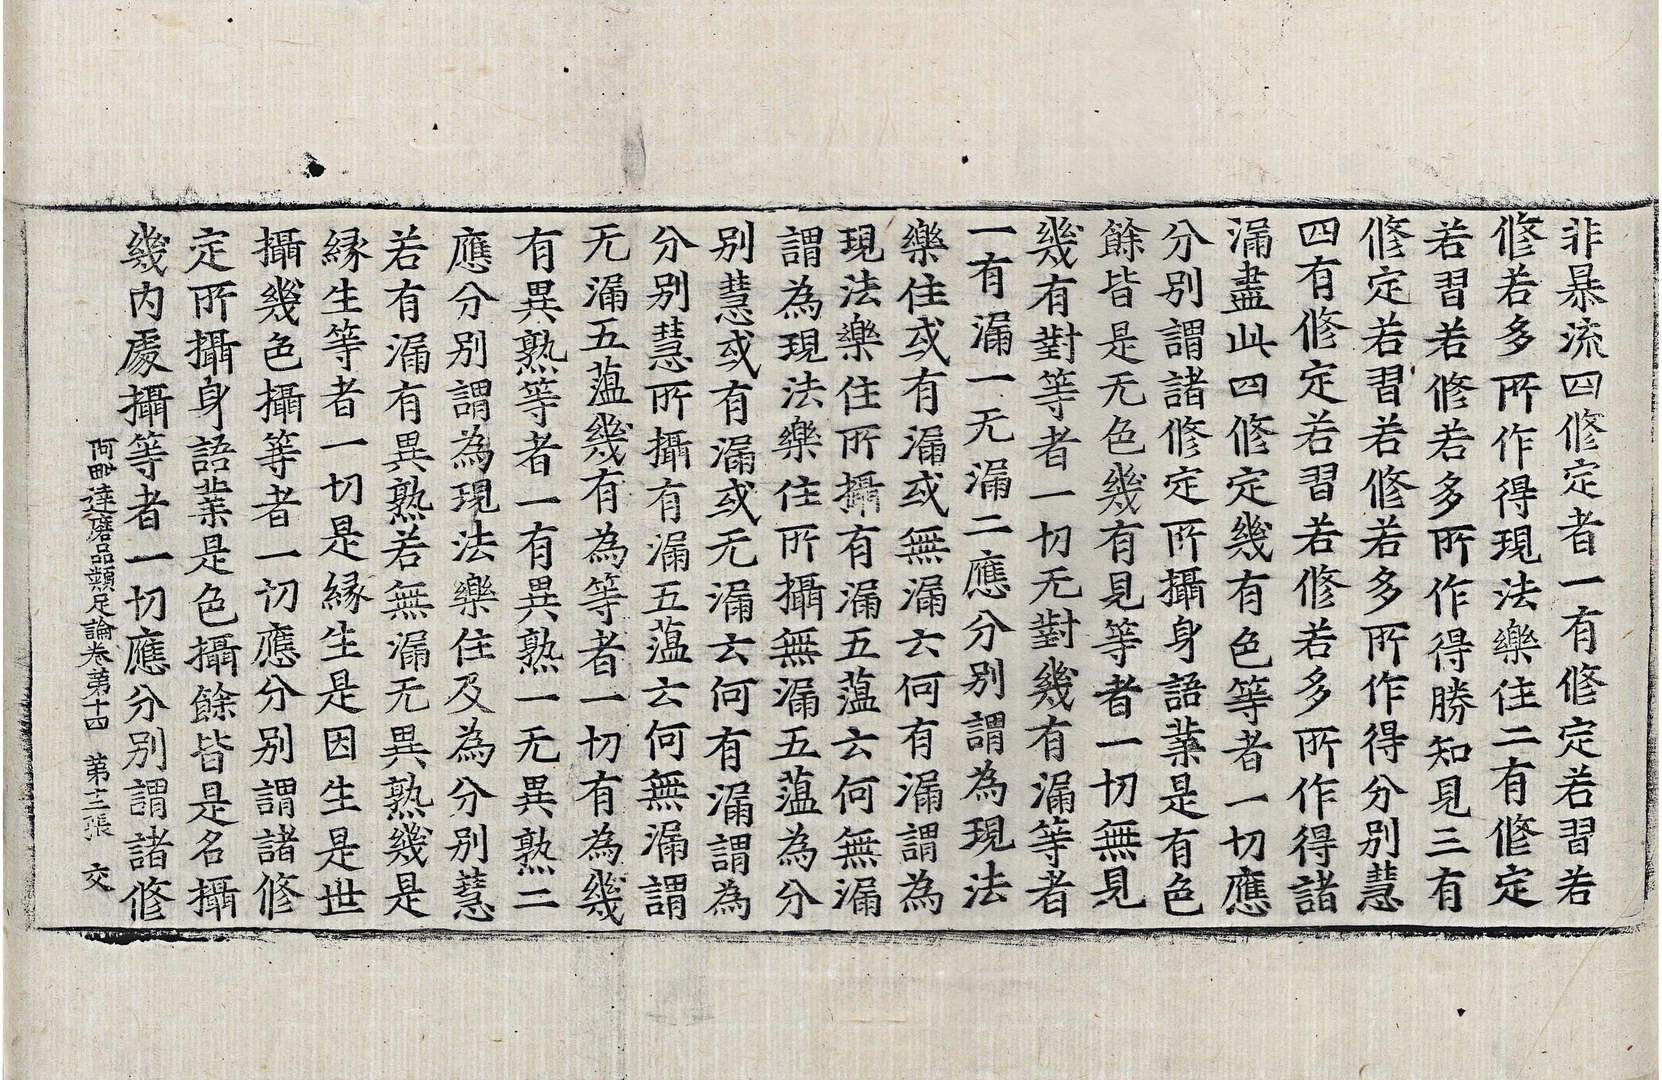 非暴流四修定者一有修定若習若
修若多所作得現法樂住二有修定
若習若修若多所作得勝知見三有
修定若習若修若多所作得分別慧
四有修定若習若修若多所作得諸
漏盡此四修定幾有色等者一切應
分別謂諸修定所攝身語業是有色
餘皆是无色幾有見等者一切無見
幾有對等者一切无對幾有漏等者
一有漏一无漏二應分別謂為現法
樂住或有漏或無漏云何有漏謂為
現法樂住所攝有漏五蕰云何無漏
謂為現法樂住所攝無漏五蕰為分
別慧或有漏或无漏云何有漏謂為
分別慧所攝有漏五蕰云何無漏謂
无漏五蕰幾有為等者一切有為幾
有異熟等者一有異熟一无異熟二
應分別謂為現法樂住及為分別慧
若有漏有異熟若無漏无異熟幾是
緣生等者一切是緣生是因生是世
攝幾色攝等者一切應分別謂諸修
定所攝身語業是色攝餘皆是名攝
幾內處攝等者一切應分別謂諸修
阿毗達磨品類足論卷第十四 第十二張 交